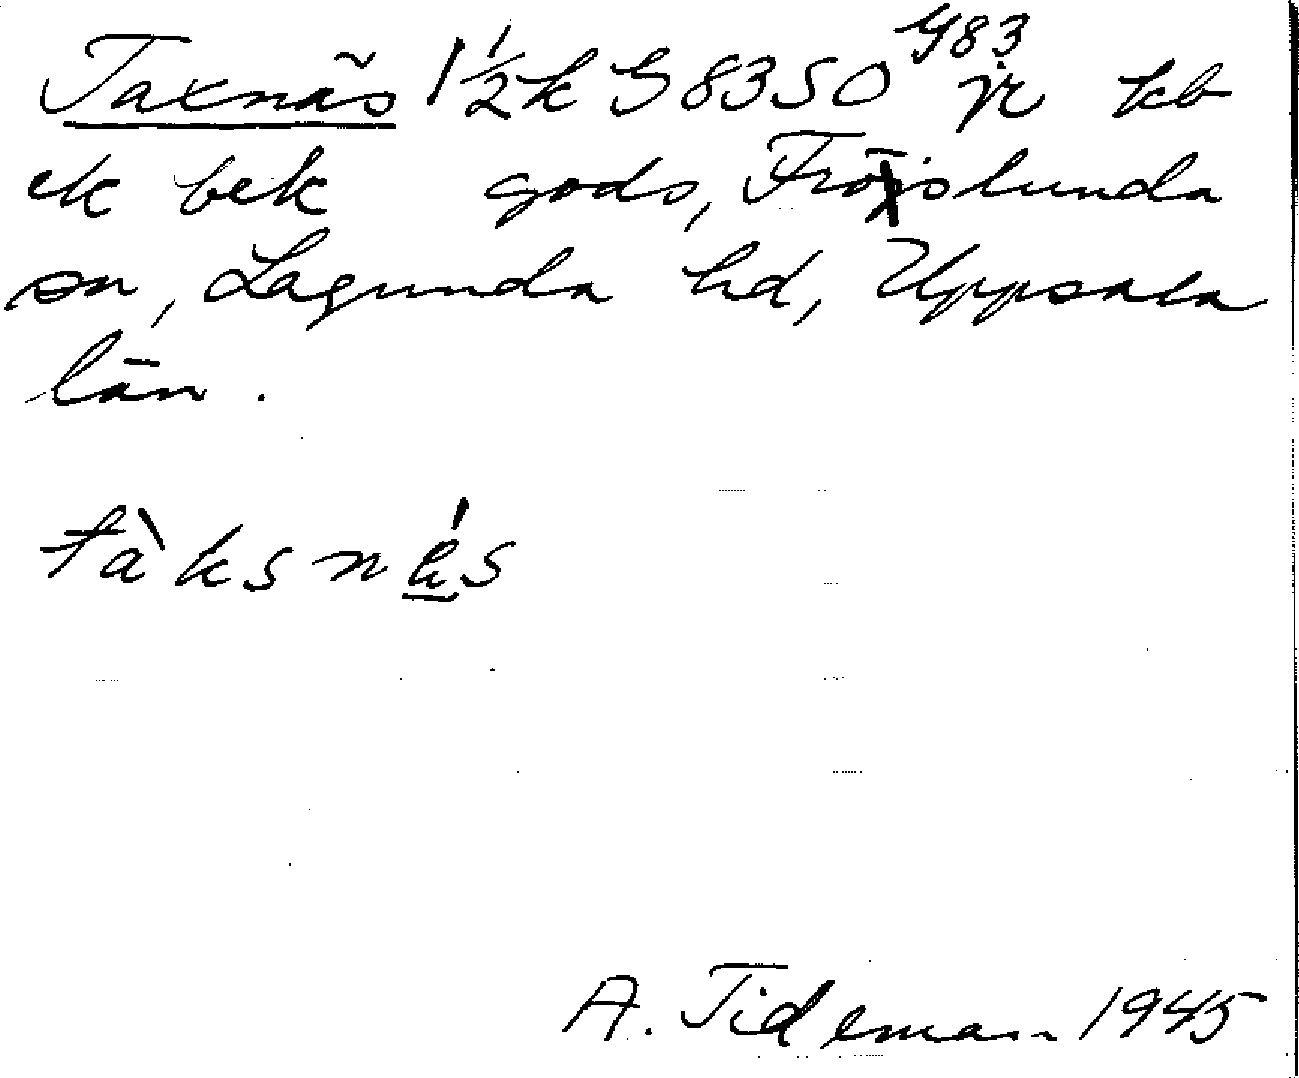 Taxnäs 1 1/2 k G 8350 G83 jr kb
ek bek gods, Fröslunda
sn, Lagunda hd, Uppsala
län.
tàksnä́s
A. Tideman 1945